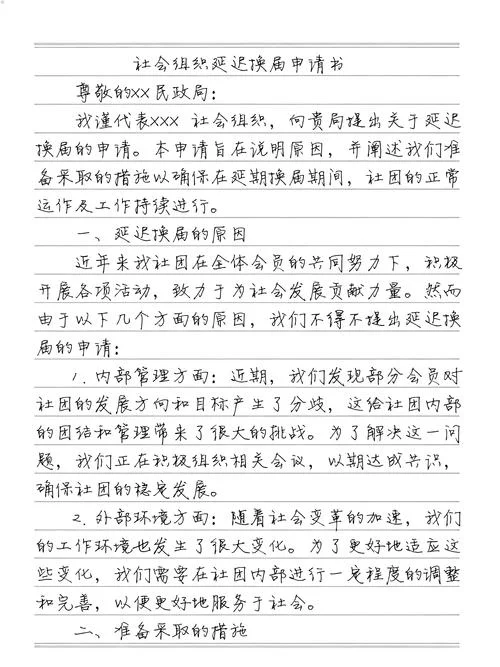 社会组织延迟换届申请书
尊敬的xx民政局：
我谨代表xxx 社会组织，向贵局提出关于延迟
换届的申请。本申请旨在说明原因，并阐述我们准
备采取的措施以确保在延期换届期间，社团的正常
运作及工作持续进行。
一、延迟换届的原因
近年来我社团在全体会员的共同努力下，积极
开展各项活动，致力于为社会发展贡献力量。然而
由于以下几个方面的原因，我们不得不提出延迟换
届的申请：
1. 内部管理方面：近期，我们发现部分会员对
社团的发展方向和目标产生了分歧，这给社团内部
的团结和管理带来了很大的挑战。为了解决这一问
题，我们正在积极组织相关会议，以期达成共识，
确保社团的稳定发展。
2. 外部环境方面：随着社会变革的加速，我们
的工作环境也发生了很大变化。为了更好地适应这
些变化，我们需要在社团内部进行一定程度的调整
和完善，以便更好地服务于社会。
二、准备采取的措施